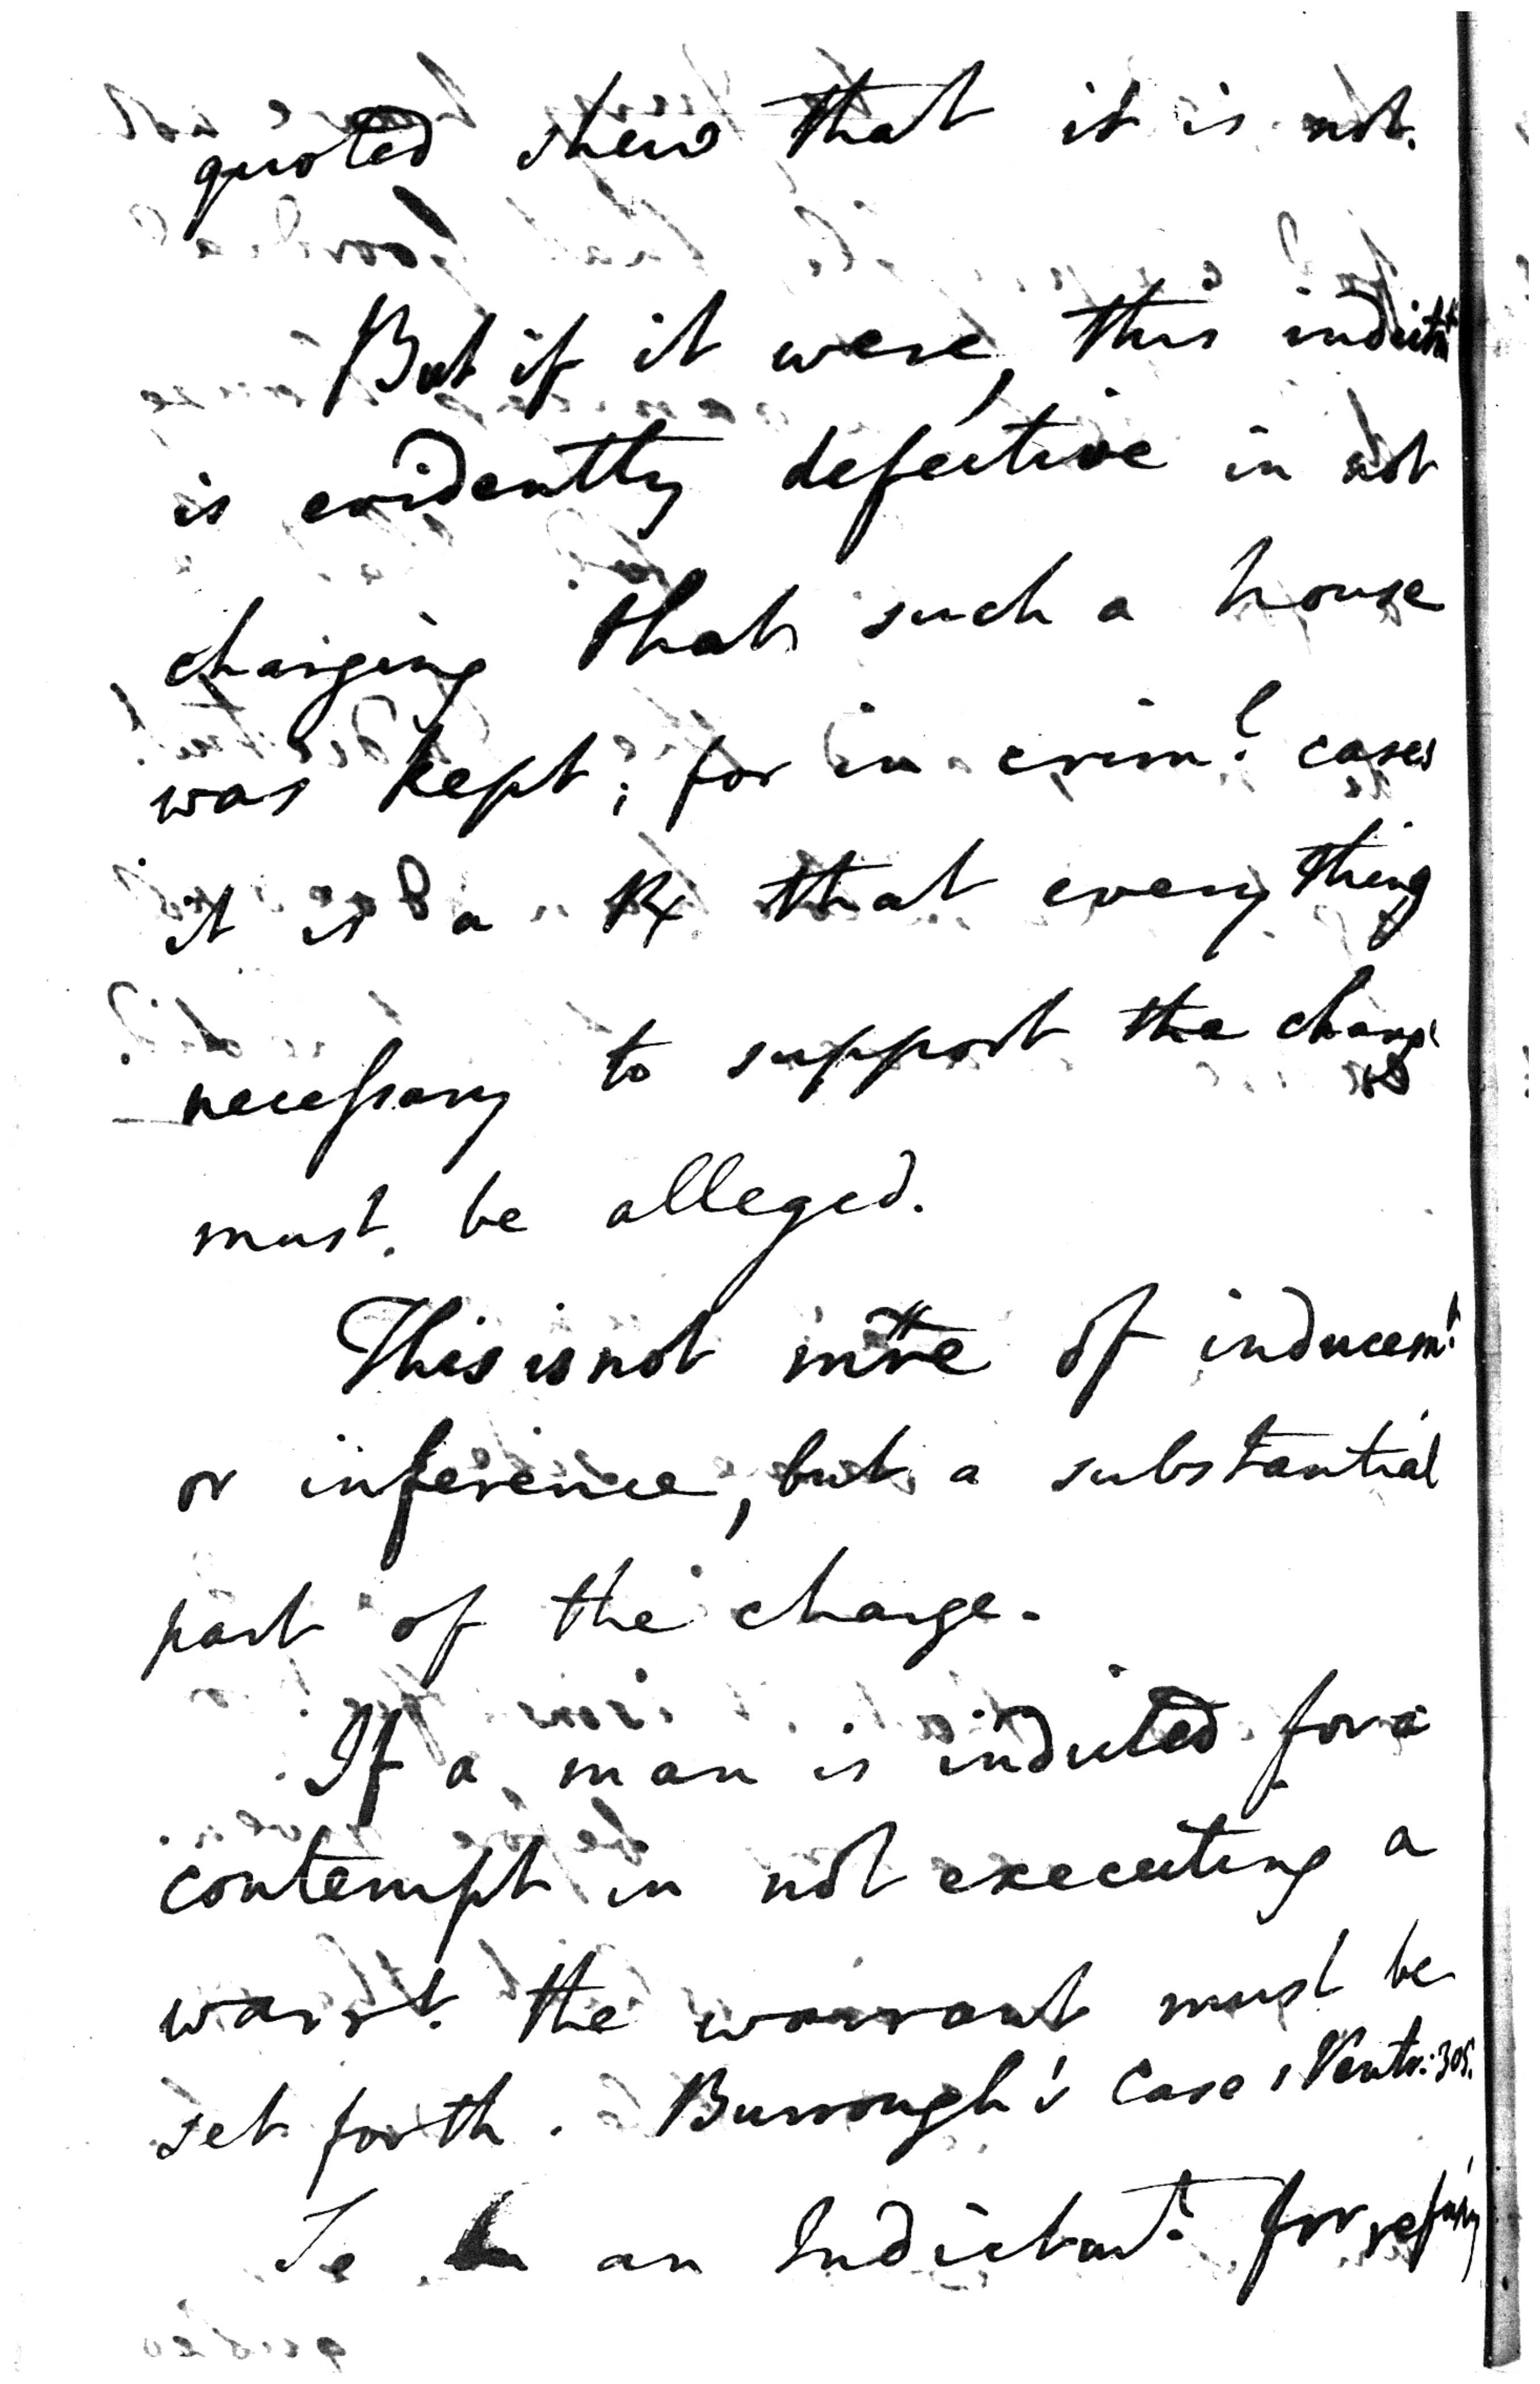 quoted shew that it is not.
But if it were, this indictmt
is evidently defective in not
charging that such a house
was kept; for in criml cases
it is a Rx that every thing
necessary to support the charge
must be alleged.
This is not mtre of inducemt
or inference, but a substantial
part of the charge.
If a man is indicted for a
contempt in not executing a
warrt. the warrant must be
set forth. Burrough's Case 1 Ventr: 305.
So an Indictmt for refusing